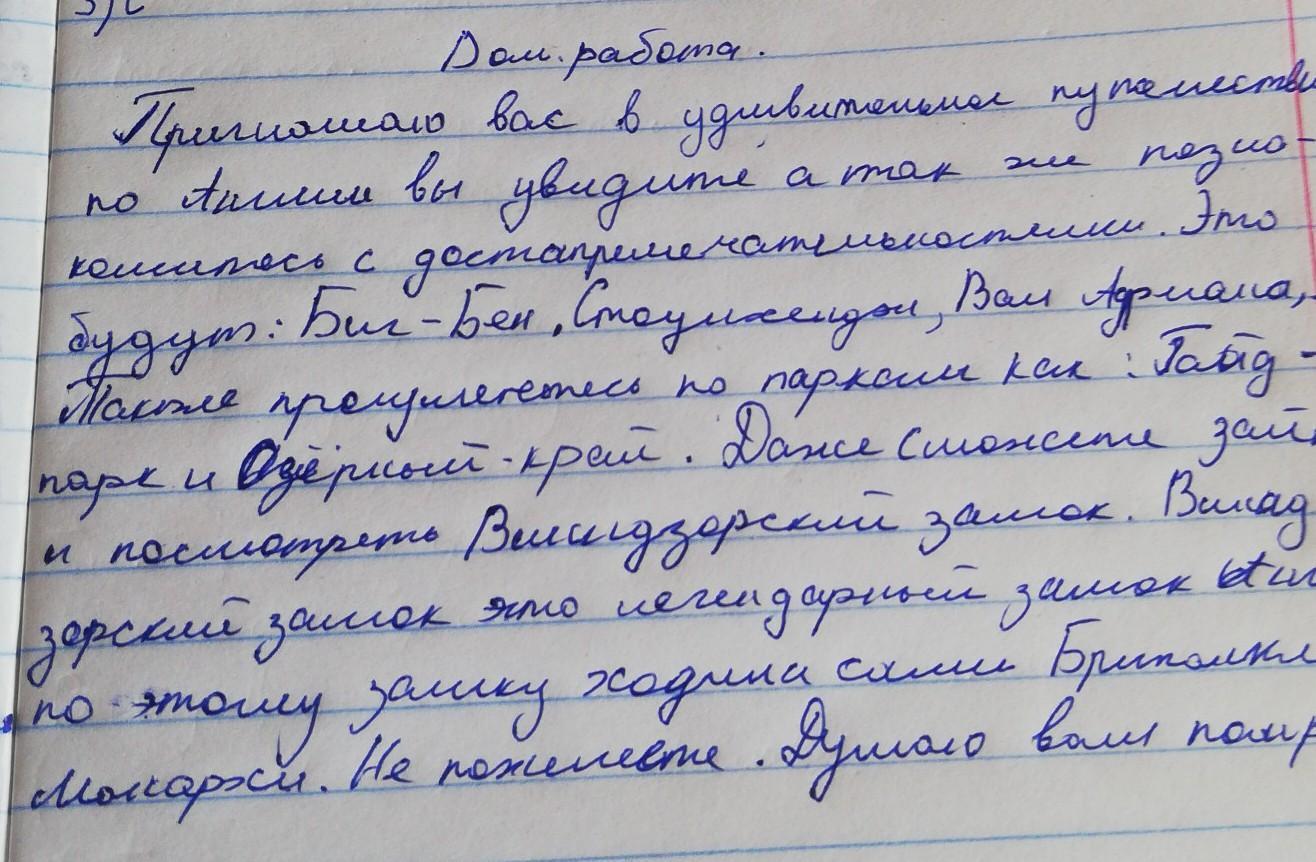 Дом. работа.
Приглашаю вас в удивительное путешестви
по Англии вы увидите а так же позна-
комитесь с достапремечательностями. Это
будут: Биг-Бен, Стоунхендж, Вал Адриана,
Также прогуляетесь по паркам как: Гайд-
парк и Озёрный-край. Даже сможете зай
и посмотреть Виндзорский замок. Винд
зорский замок это легендарный замок Анг
по этому замку ходили сами Британки
Монархи. Не пожалеете. Думаю вам понр